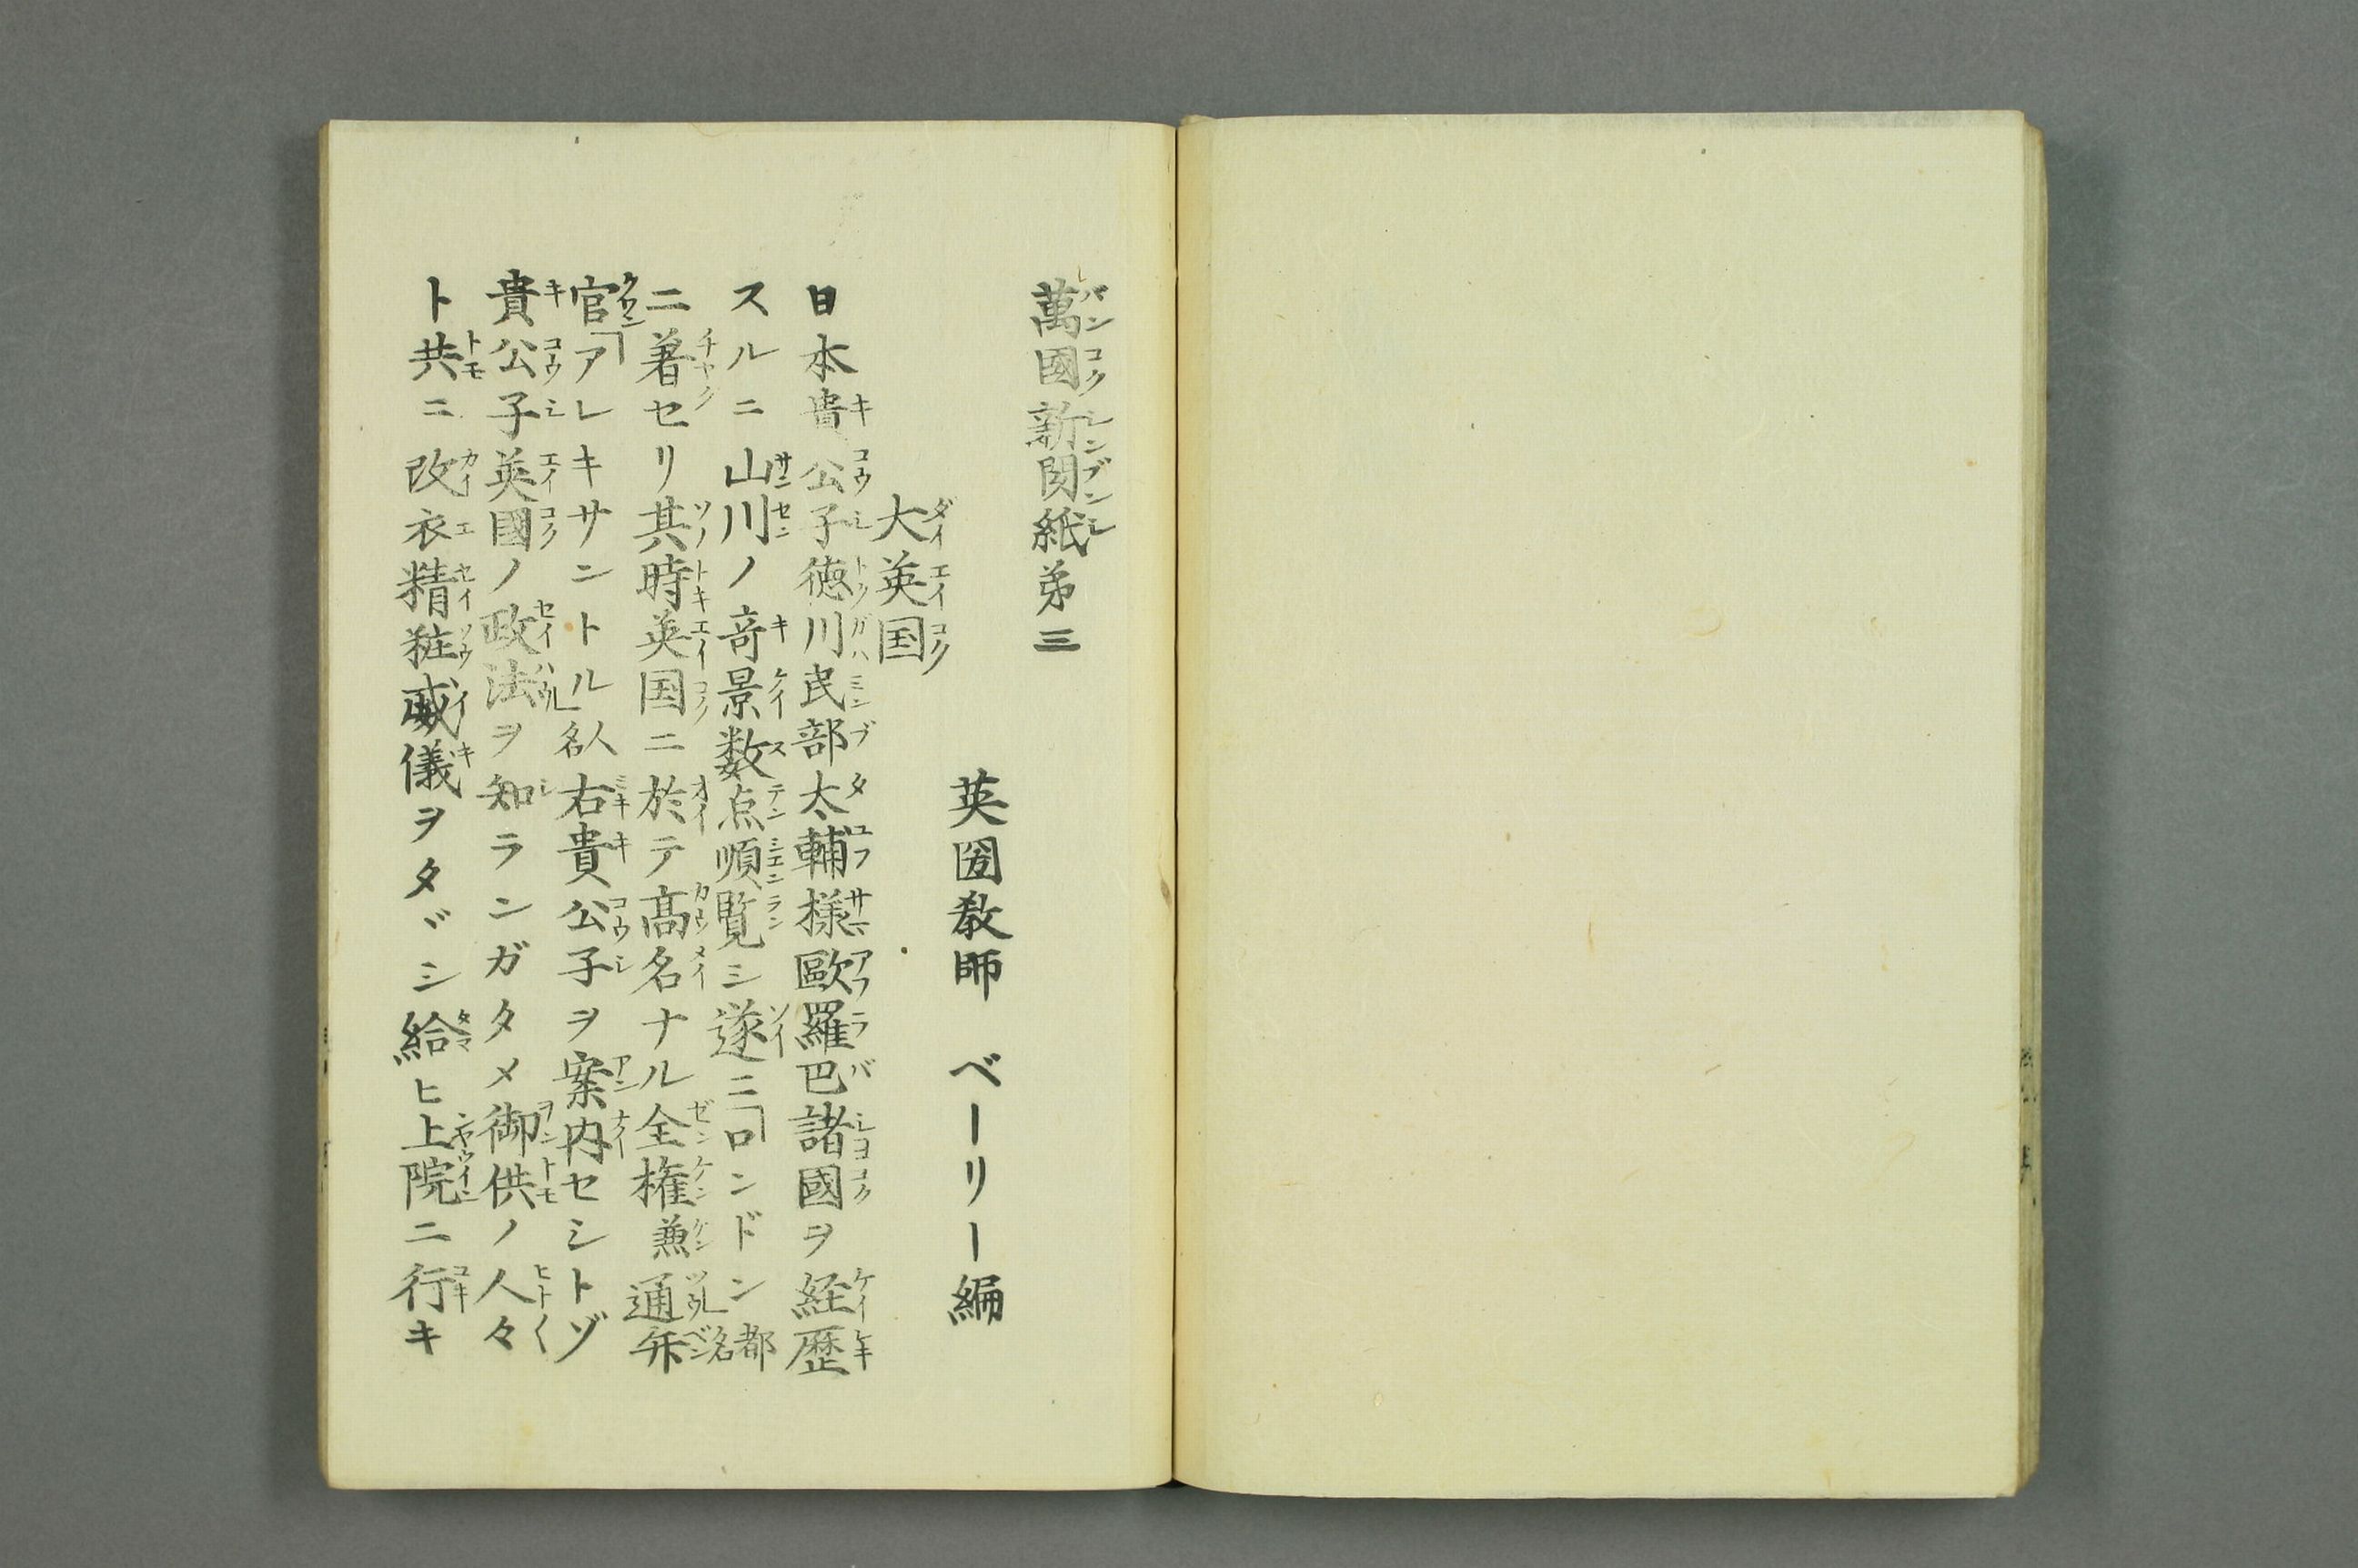 萬國新聞紙弟三
英圀教師　ベーリー編
大英国
日本貴公子徳川民部大輔様歐羅巴諸國ヲ経歴
スルニ山川ノ竒景数点順覧シ遂ニ「ロンドン都名
ニ着セリ其時英国ニ於テ髙名ナル全権兼通弁
官「アレキサントル人名右貴公子ヲ案内セシトゾ
貴公子英國ノ政法ヲ知ランガタメ御供ノ人々
ト共ニ改衣精粧威儀ヲタヾシ給ヒ上院ニ行キ